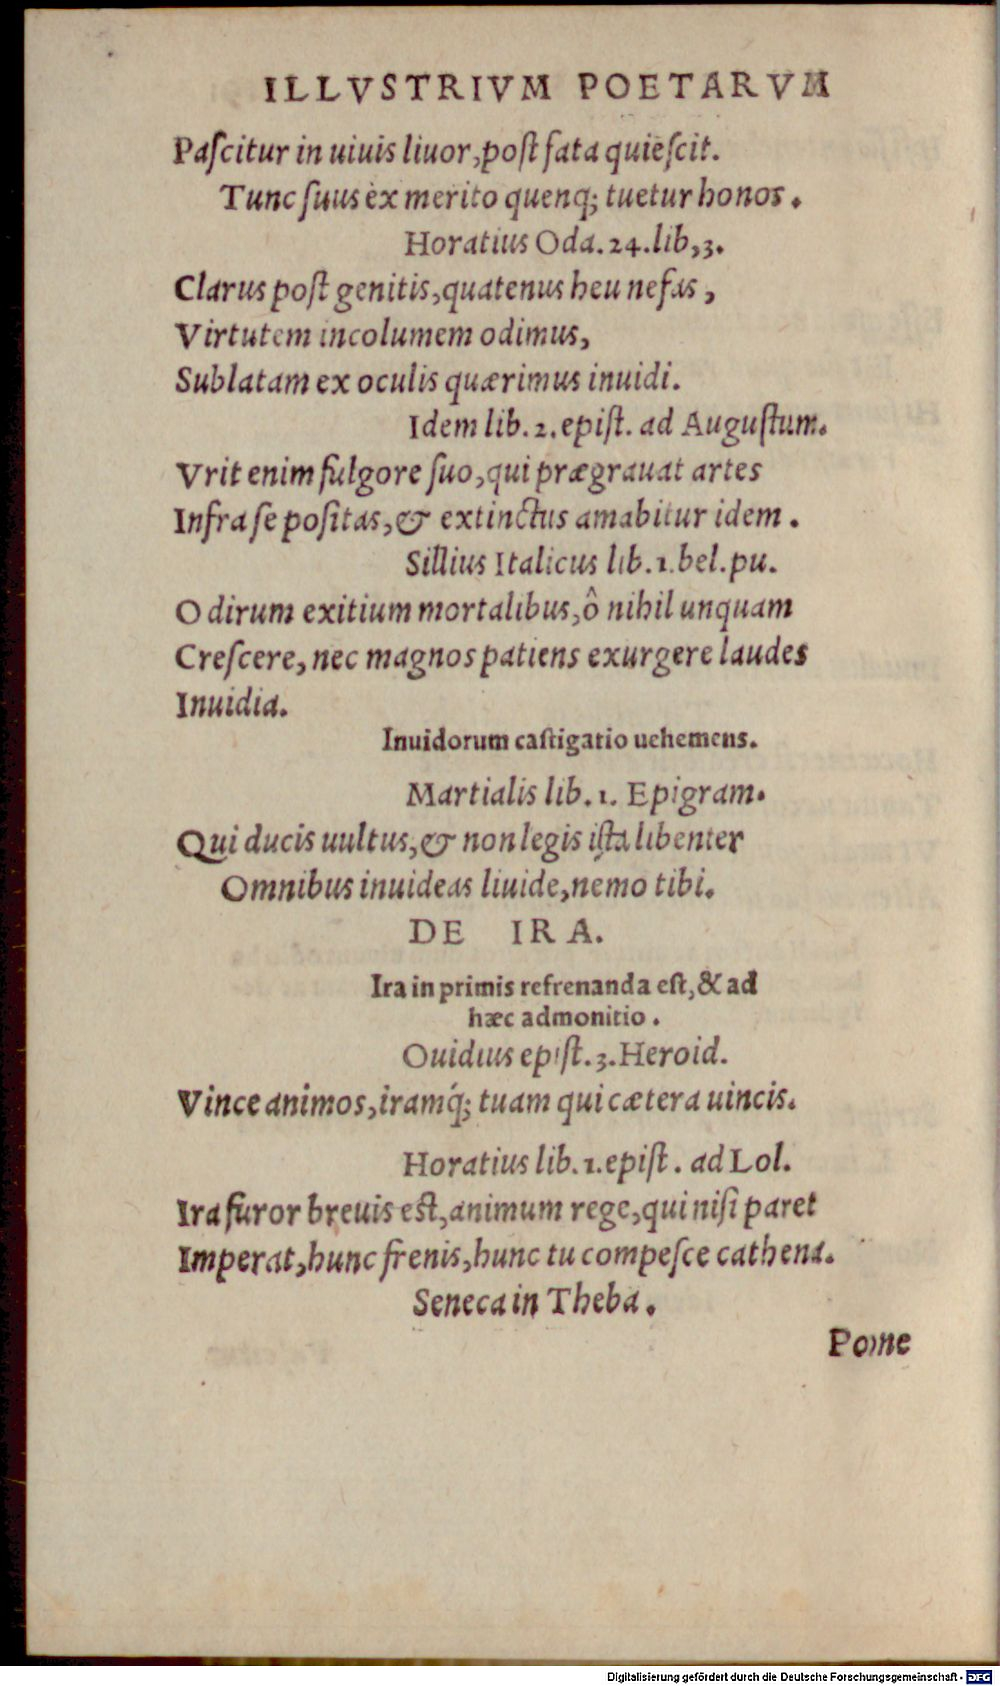 ILLVSTRIVM POETARVM
Paſcitur in uiuis liuor, poſt fata quieſcit.
Tunc ſuus ex merito quenq; tuetur honos.
Horatius Oda. 24. lib, 3.
Clarus poſt genitis, quatenus heu nefas,
Virtutem incolumem odimus,
Sublatam ex oculis quærimus inuidi.
Idem lib. 2. epiſt. ad Auguſtum.
Vrit enim fulgore ſuo, qui prægrauat artes
Infra ſe poſitas, & extinctus amabitur idem.
Sillius Italicus lib. 1. bel. pu.
O dirum exitium mortalibus, ô nihil unquam
Creſcere, nec magnos patiens exurgere laudes
Inuidia.
Inuidorum caſtigatio uehemens.
Martialis lib. 1. Epigram.
Qui ducis uultus, & non legis iſta libenter
Omnibus inuideas liuide, nemo tibi.
DE IRA.
Ira in primis refrenanda eſt, & ad
hæc admonitio.
Ouidius epiſt. 3. Heroid.
Vince animos, iramq́; tuam qui cætera uincis.
Horatius lib. 1. epiſt. ad Lol.
Ira furor breuis eſt, animum rege, qui niſi paret
Imperat, hunc frenis, hunc tu compeſce cathena.
Seneca in Theba.
Pome
Digitalisierung gefördert durch die Deutsche Forschungsgemeinschaft - DFG